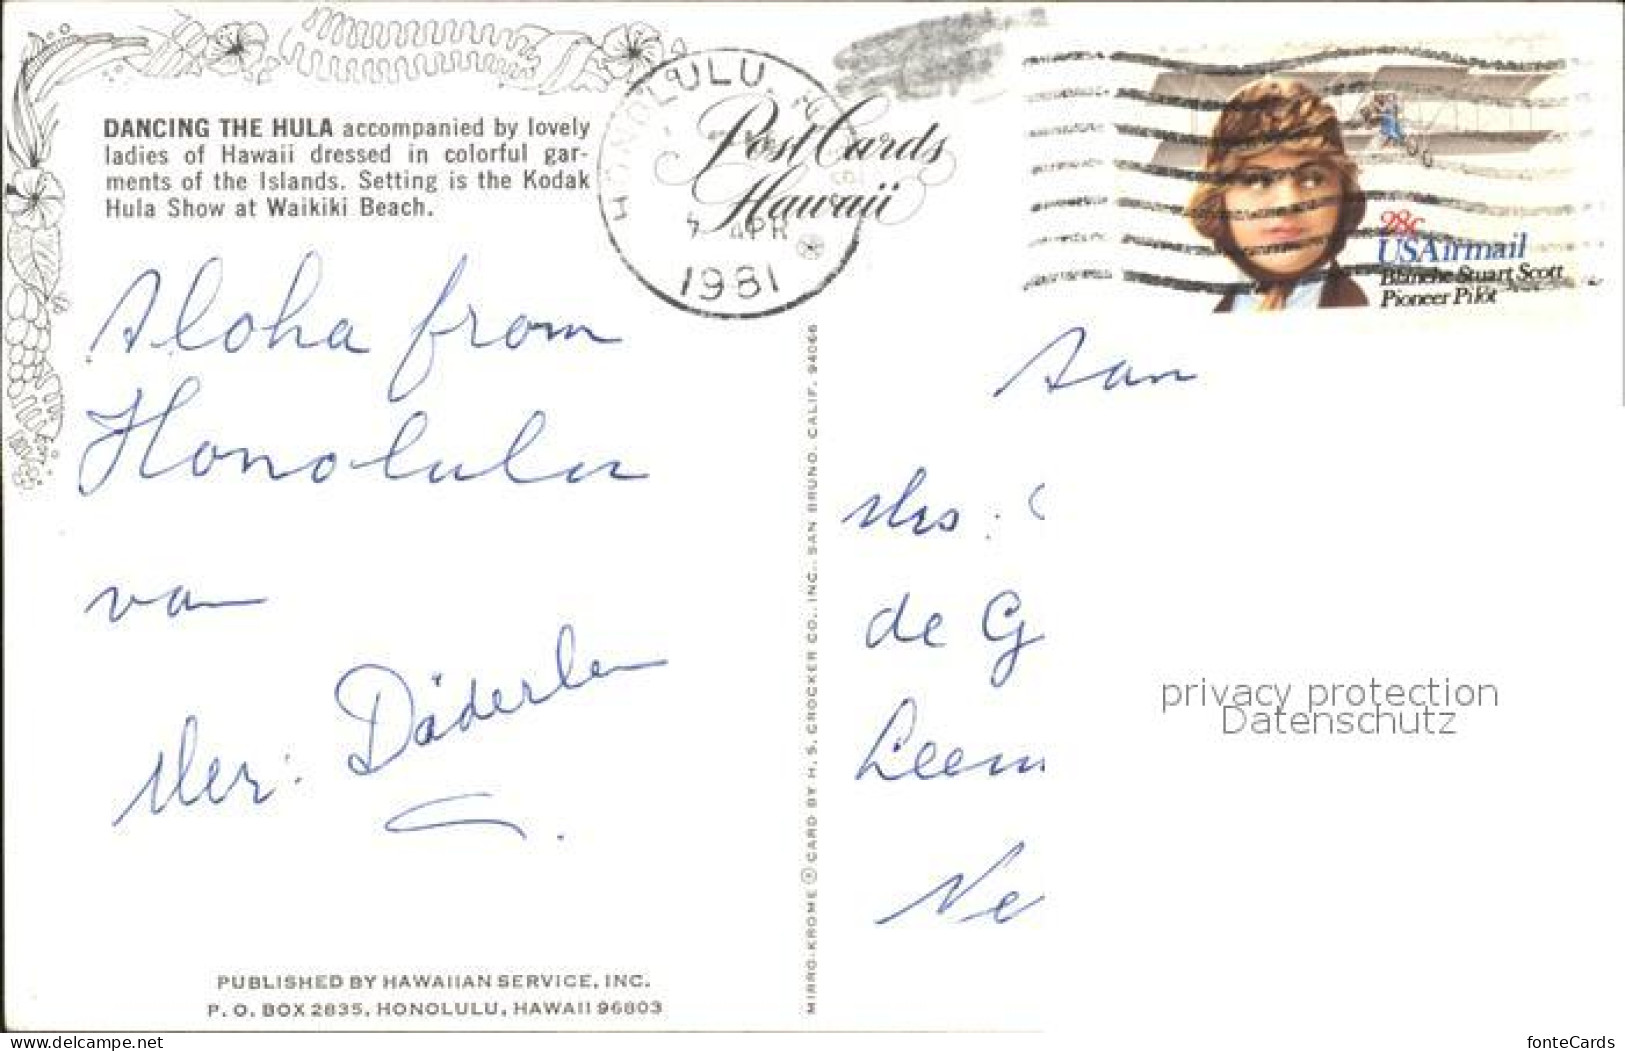 DANCING THE HULA accompanied by lovely
ladies of Hawaii dressed in colorful gar-
ments of the Islands. Setting is the Kodak
Hula Show at Waikiki Beach.
Post Cards
Hawaii
HONOLULU
APR
1981
28c
USAirmail
Blanche Stuart Scott
Pioneer Pilot
Aloha from
Honolulu
van
Mer: Däderlen
Aan
Mrs.
de G
Leem
Ne
MIRRO-KROME ® CARD BY H. S. CROCKER CO., INC., SAN BRUNO, CALIF. 94066
privacy protection
Datenschutz
PUBLISHED BY HAWAIIAN SERVICE, INC.
P. O. BOX 2835, HONOLULU, HAWAII 96803
www.delcampe.net
fonteCards